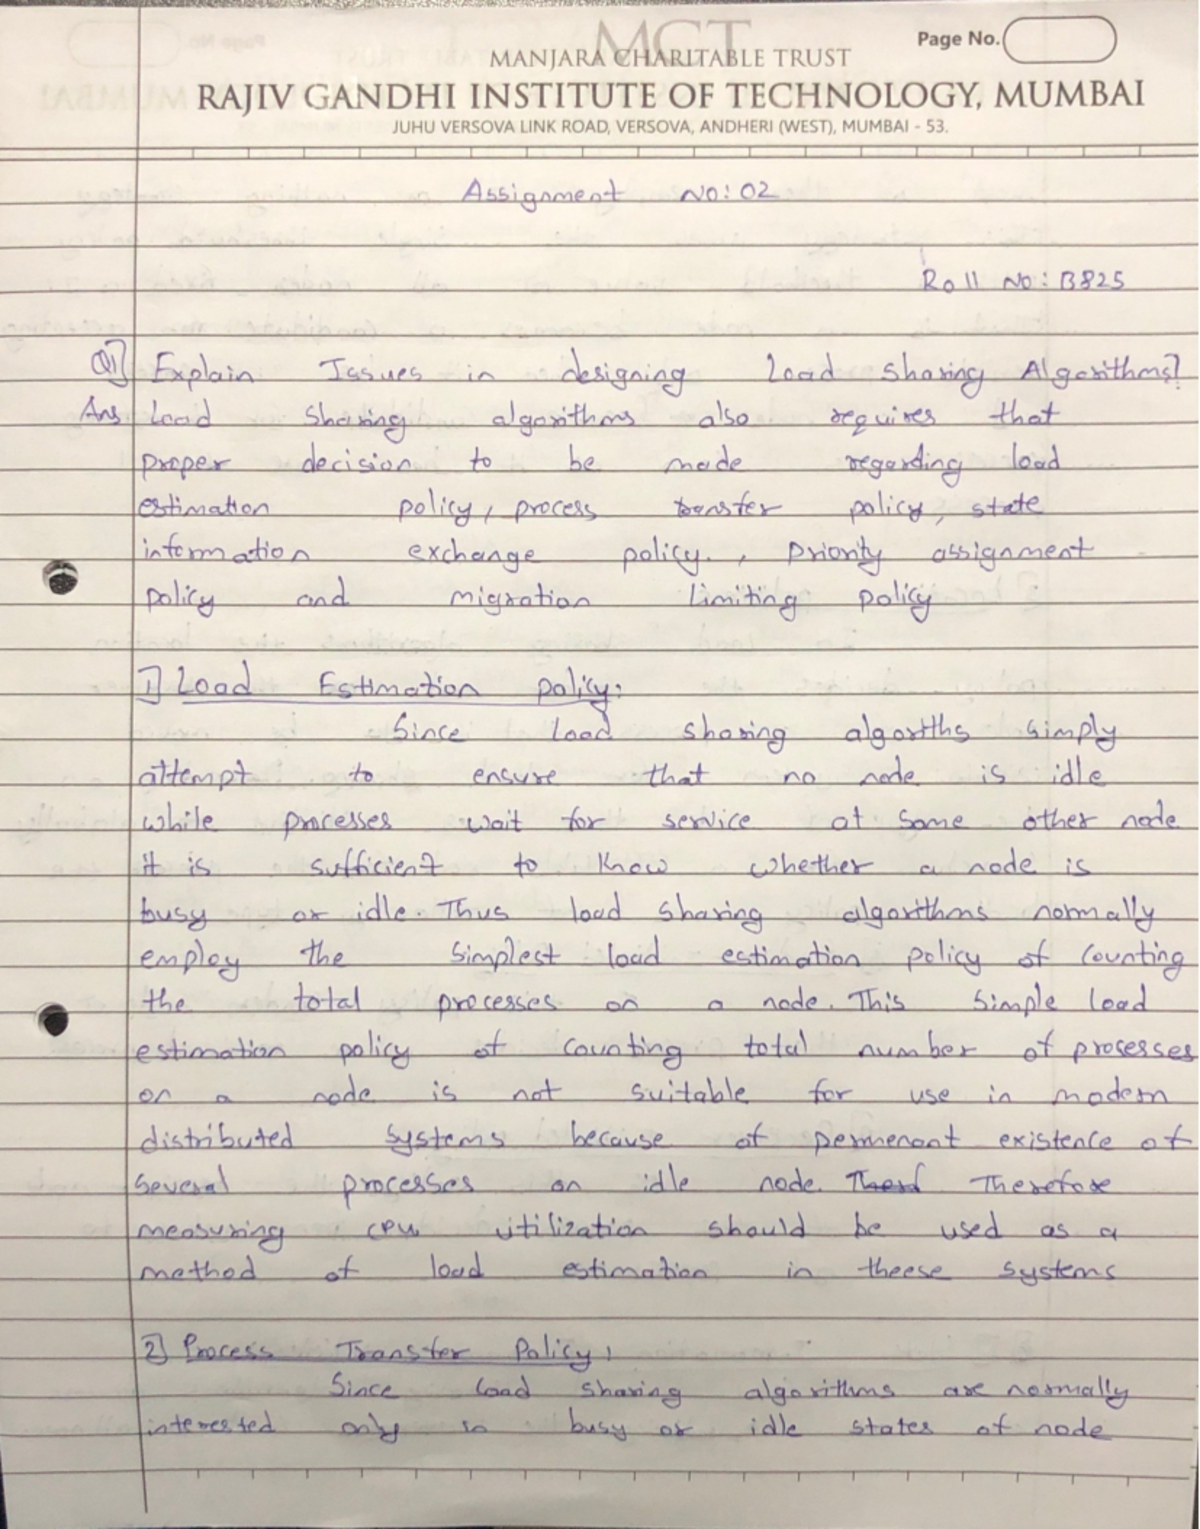 MCT
Page No.
MANJARA CHARITABLE TRUST
RAJIV GANDHI INSTITUTE OF TECHNOLOGY, MUMBAI
JUHU VERSOVA LINK ROAD, VERSOVA, ANDHERI (WEST), MUMBAI - 53.
Assignment No: 02
Roll No: B825
Q1] Explain Issues in designing Load sharing Algorithms?
Ans. Load sharing algorithms also requires that
proper decision to be made regarding load
estimation policy, process transfer policy, state
information exchange policy. , Priority assignment
policy and migration limiting policy
1] Load Estimation policy:
Since load sharing algorths simply
attempt to ensure that no node is idle
while processes wait for service at some other node
it is sufficient to know whether a node is
busy or idle. Thus load sharing algorithms normally
employ the simplest load estimation policy of counting
the total processes on a node. This simple load
estimation policy of counting total number of processes
on a node is not suitable for use in modern
distributed systems because of permenant existence of
several processes on idle node. Therefore
measuring CPU utilization should be used as a
method of load estimation in theese systems
2] Process Transfer Policy:
Since load sharing algorithms are normally
interested only in busy or idle states of node